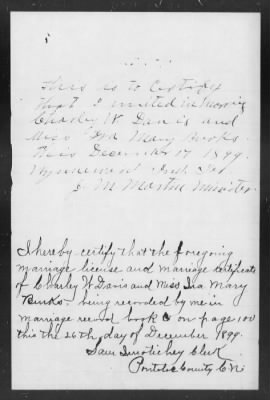 This is to Certify
that I united in marriage
Charley W Davis and
Miss Ida Mary Binks
this December 17 1899.
Wynnewood Ind. Ter
J. M. Martin Minister
I hereby certify that the foregoing
marriage license and marriage certificate
of Charley W Davis and Miss Ida Mary
Binks. being recorded by me in
marriage record book on page 100
this the 26th day of December 1899.
Sam Clerk
Pontotoc County C.N.